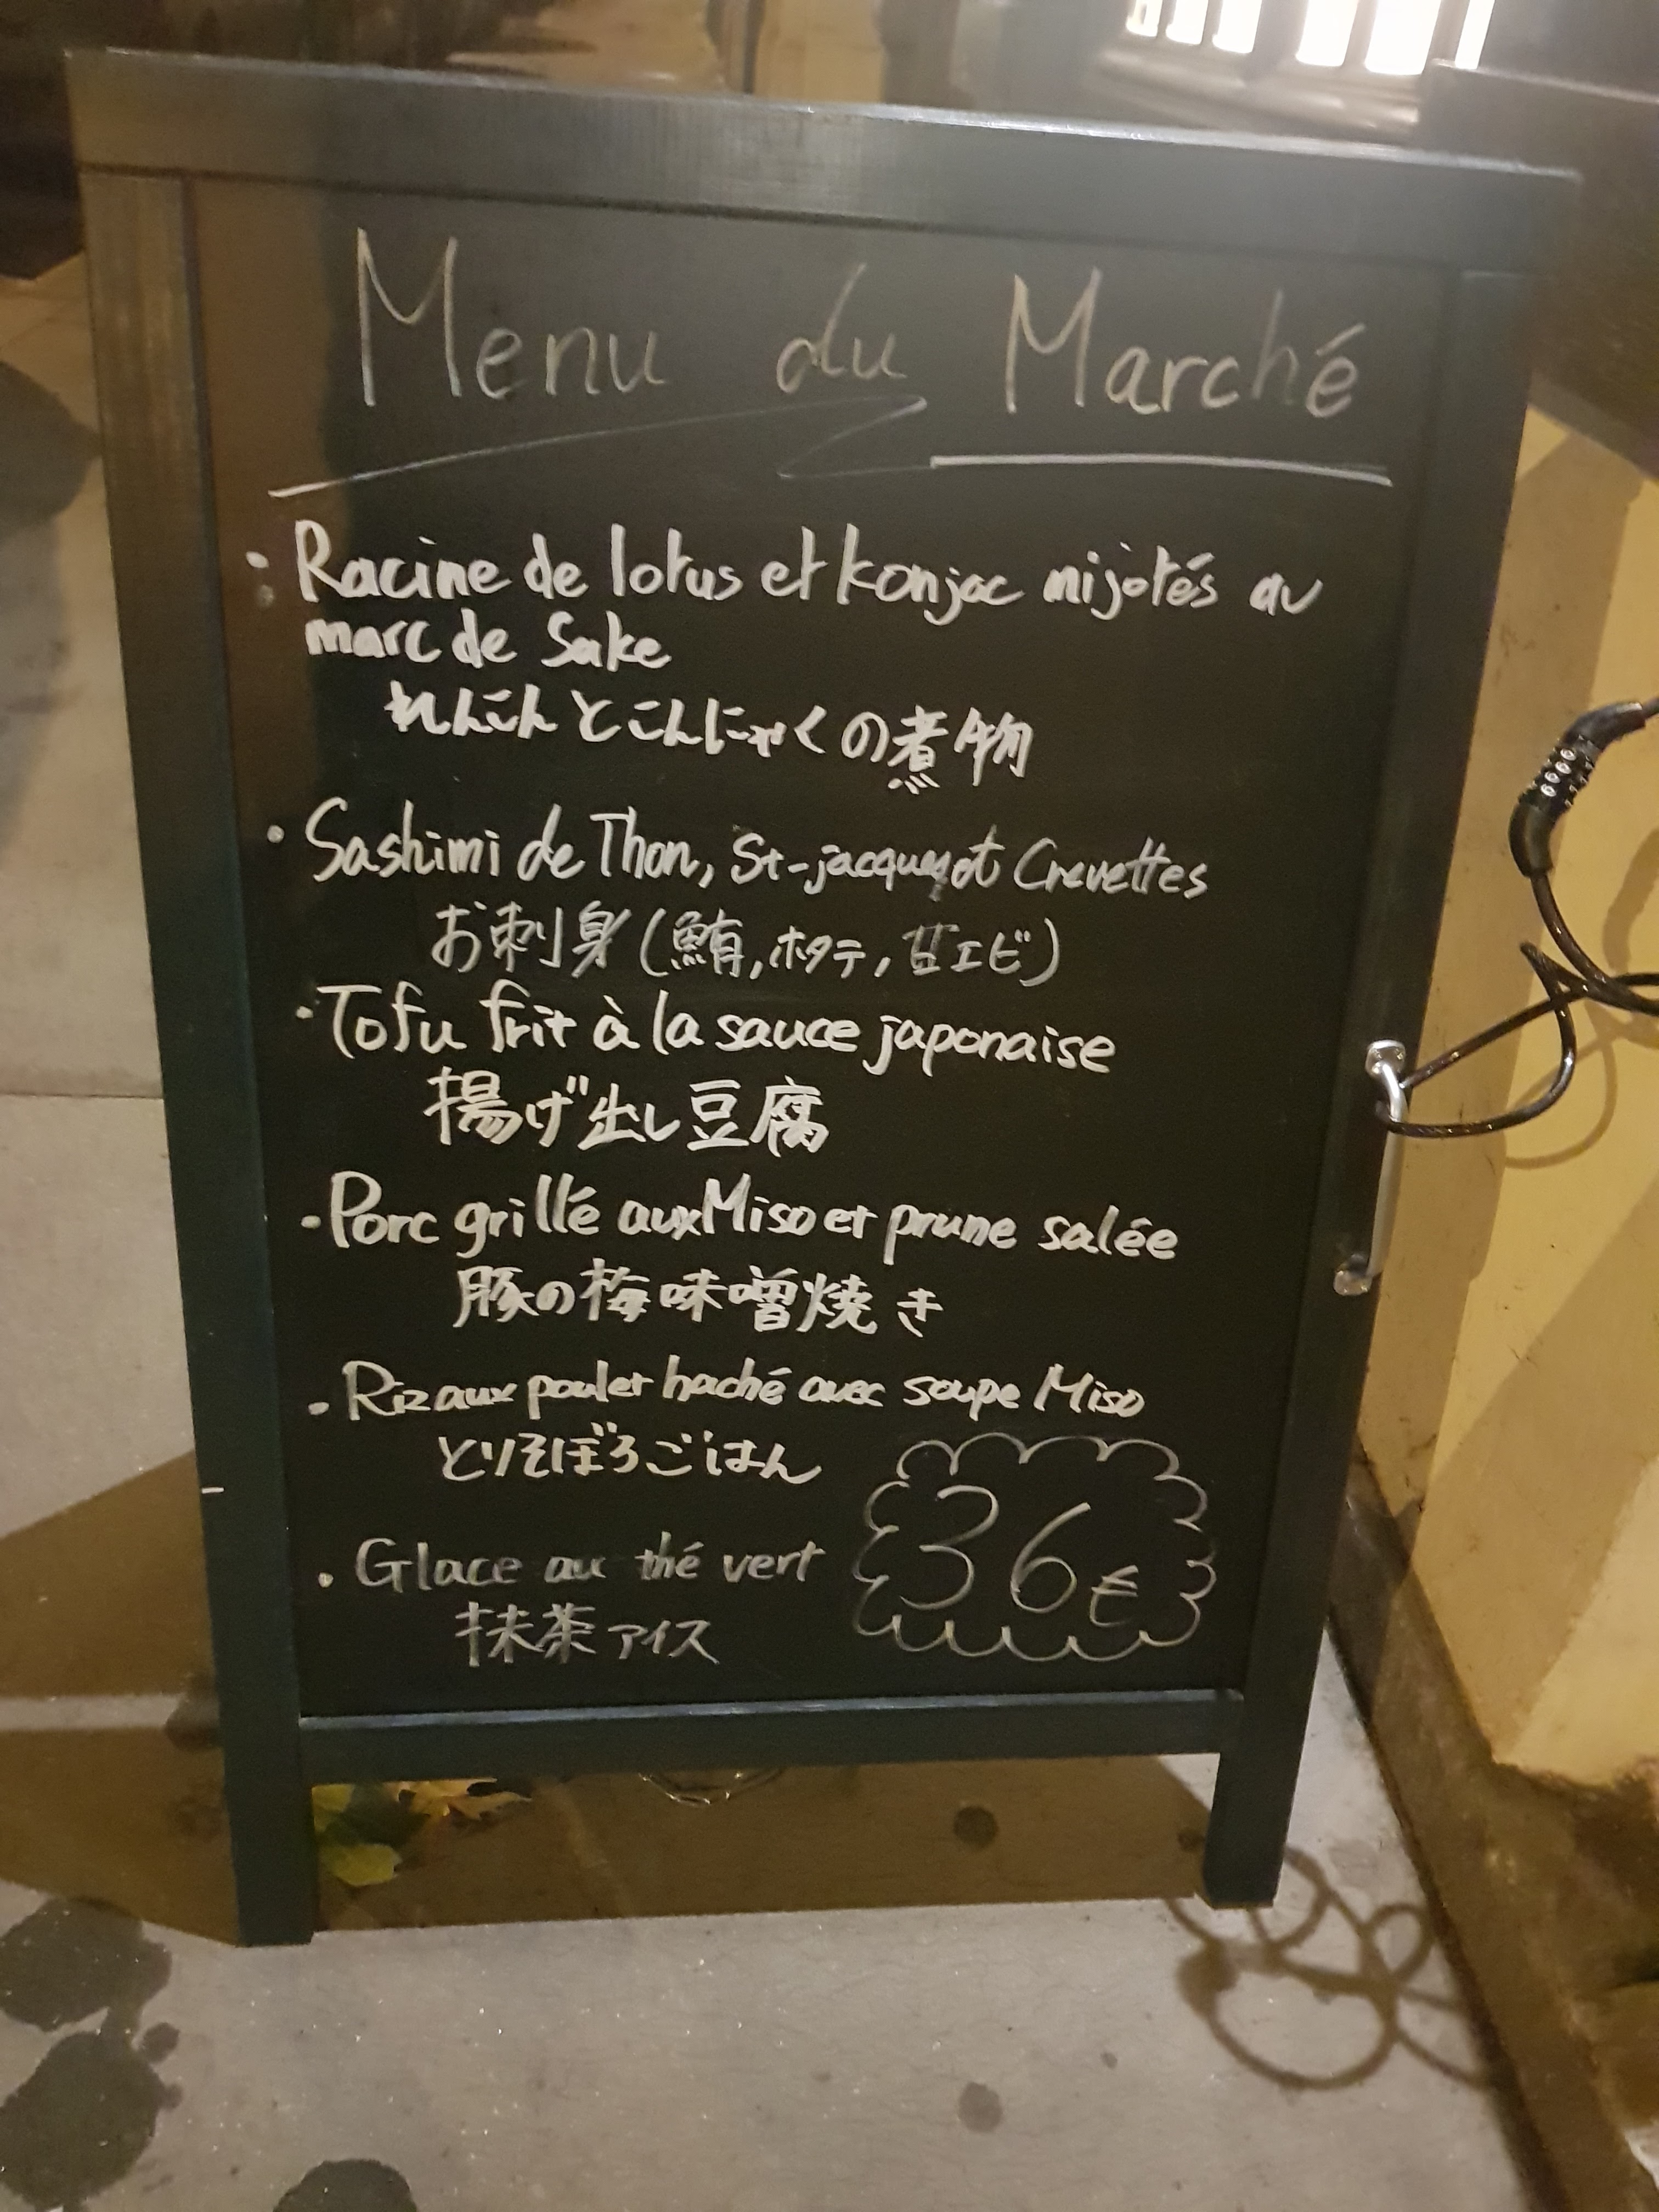 Menu du Marché
• Racine de lotus et konjac mijotés au
marc de Sake
れんこんとこんにゃくの煮物
• Sashimi de Thon, St-jacques et Crevettes
お刺身(鮪,ホタテ,甘エビ)
• Tofu frit à la sauce japonaise
揚げ出し豆腐
• Porc grillé aux Miso et prune salée
豚の梅味噌焼き
• Riz aux poulet haché avec soupe Miso
とりそぼろごはん
• Glace au thé vert
抹茶アイス
36€